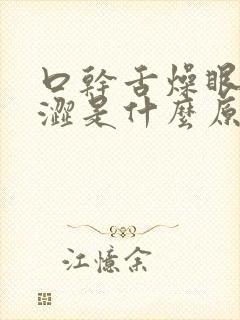 口幹舌燥眼
澀是什麼原
江憶余